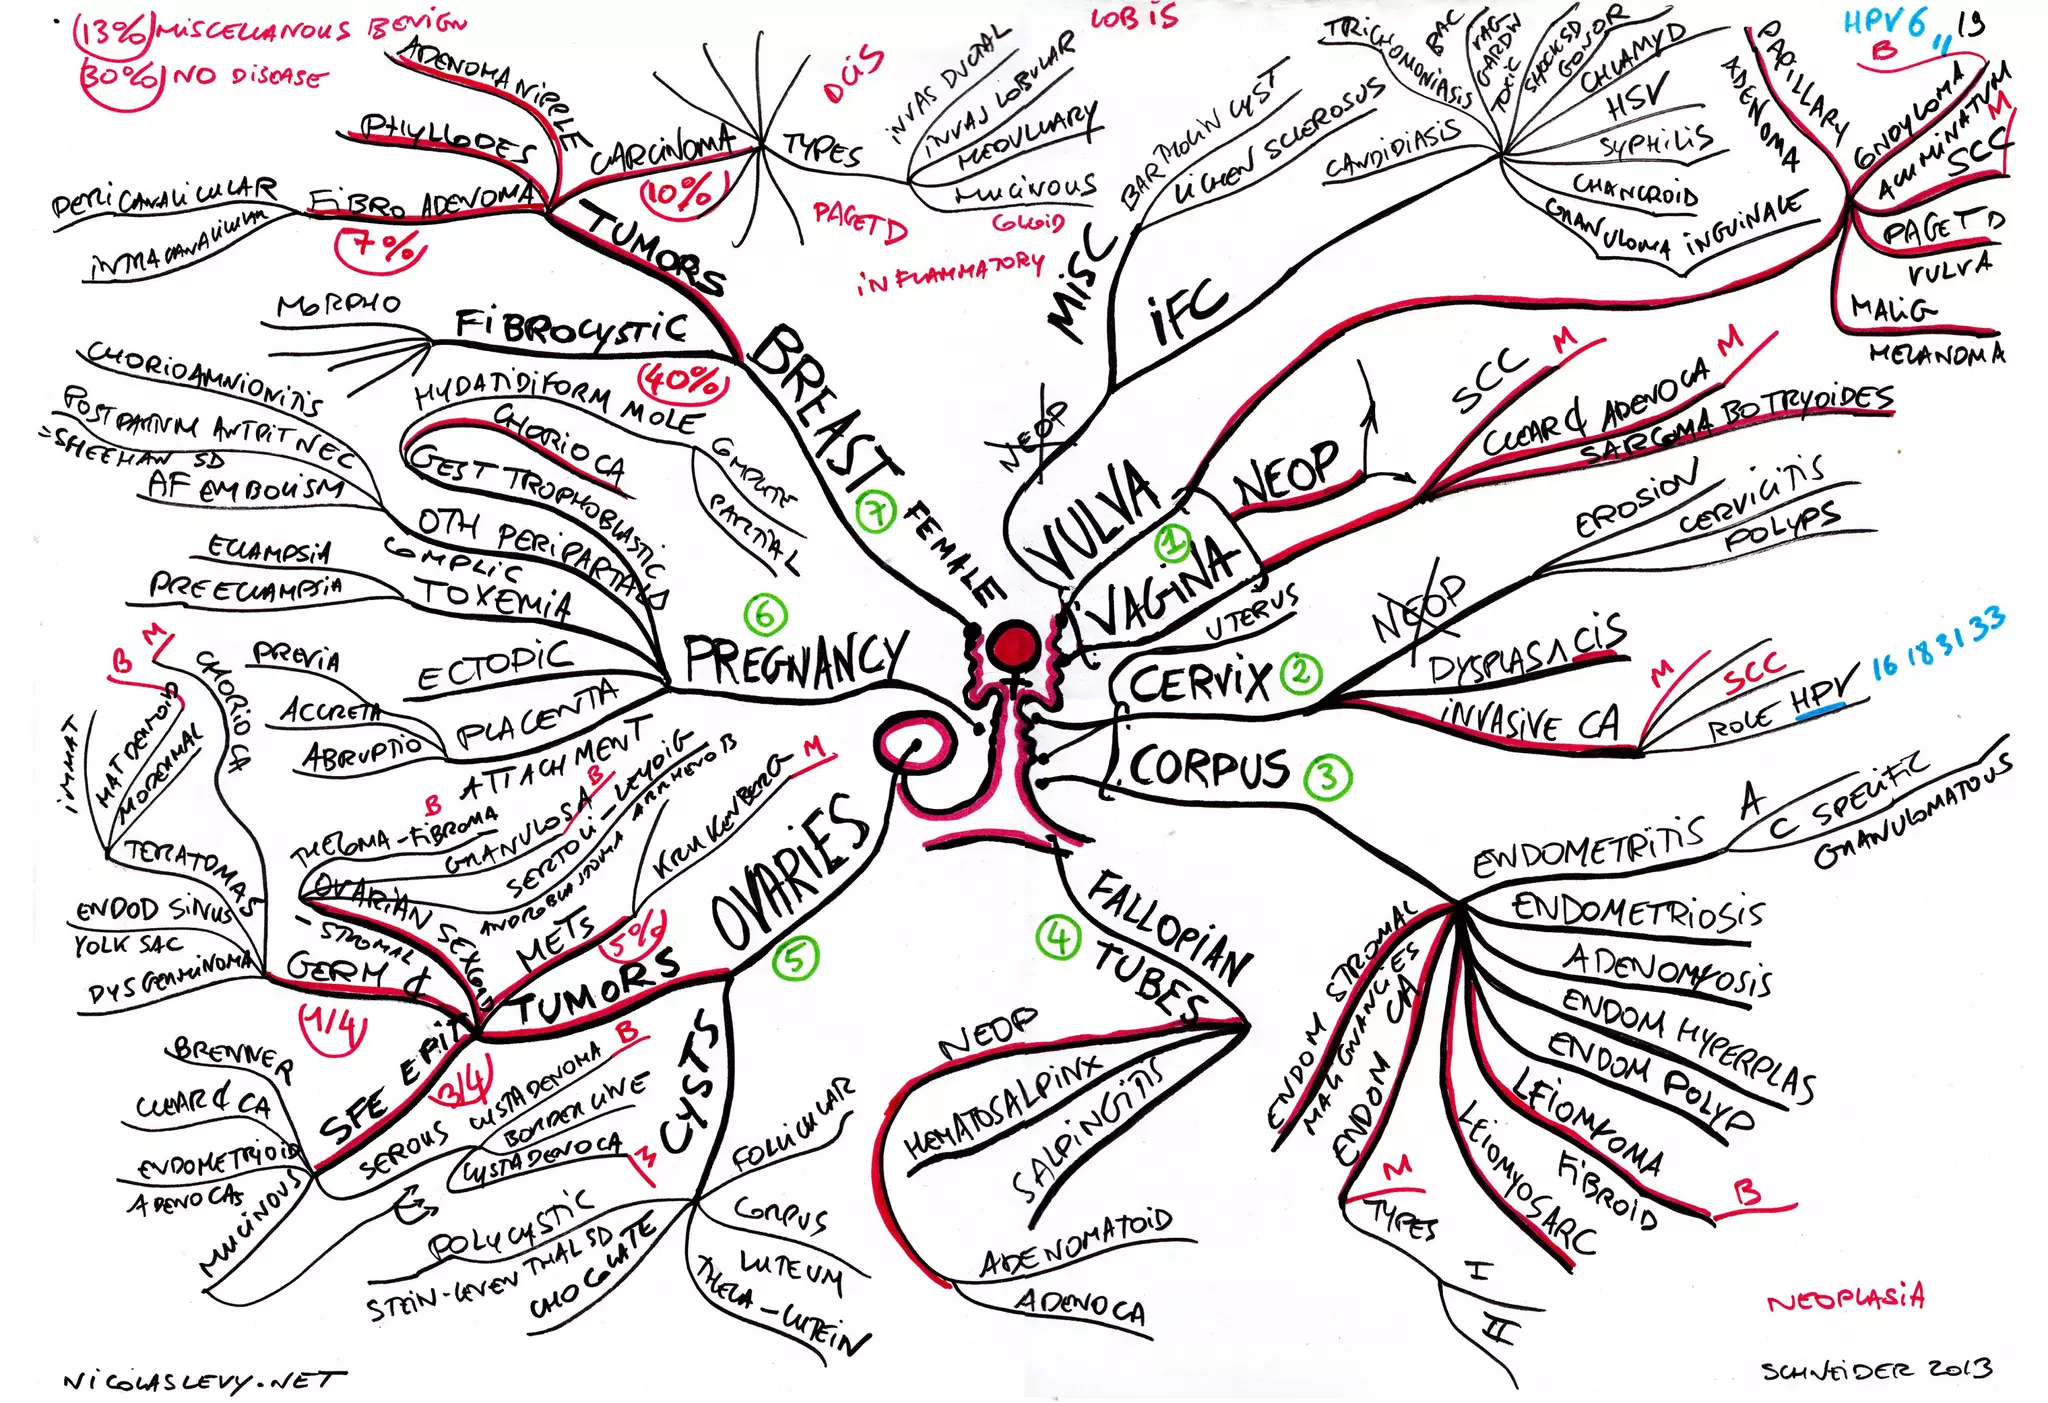 13% MISCELLANOUS BENIGN
30% NO DISEASE
FEMALE
VULVA
VAGINA
1
NEOP
MISC
BARTHOLIN CYST
LICHEN SCLEROSUS
IFC
CANDIDIASIS
TRICHOMONIASIS
BAC
VAG
GARDN
TOXIC
SHOCK SD
GONOR
CHLAMYD
HSV
SYPHILIS
CHANCROID
GRANULOMA INGUINALE
PAPILLARY
ADENOMA
HPV 6 11
B
CONDYLOMA
ACUMINATUM
SCC
M
PAGET D
VULVA
MALIG
MELANOMA
NEOP
SCC
M
CLEAR ¢ ADENO CA
M
SARCOMA BOTRYOIDES
UTERUS
CERVIX
2
NEOP
EROSION
CERVICITIS
POLYPS
DYSPLAS
CIS
INVASIVE CA
M
SCC
ROLE HPV
16 18 31 33
CORPUS
3
ENDOMETRITIS
A
C SPECIFIC
GRANULOMATOUS
ENDOMETRIOSIS
ADENOMYOSIS
ENDOM HYPERPLAS
ENDOM POLYP
LEIOMYOMA
FIBROID
B
LEIOMYOSARC
ENDOM CA
M
TYPES
I
II
ENDOM STROMAL
MALIGNANCIES
FALLOPIAN
TUBES
4
NEOP
HEMATOSALPINX
SALPINGITIS
ADENOMATOID
ADENO CA
OVARIES
5
TUMORS
CYSTS
FOLLICULAR
CORPUS
LUTEUM
THECA-LUTEIN
CHOCOLATE
POLYCYSTIC
STEIN-LEVENTHAL SD
METS
5%
KRUKENBERG
M
OVARIAN SEX CORD
-STROMAL
THECOMA-FIBROMA
B
GRANULOSA
B
SERTOLI-LEYDIG
ANDROBLASTOMA ARRHENOB
GERM ¢
1/4
CHORIO CA
M
TERRATOMAS
IMMAT
MAT DERMOID
B
MODERMAL
ENDOD SINUS
YOLK SAC
DYSGERMINOMA
SFE EPIT
3/4
BRENNER
CLEAR ¢ CA
ENDOMETRYOID
ADENOCAS
MUCINOUS
SEROUS
CYSTADENOMA
B
BORDERLINE
CYSTADENOCA
M
PREGNANCY
6
PLACENTA
ATTACHMENT
PREVIA
ACCRETA
ABRUPTIO
ECTOPIC
TOXEMIA
ECLAMPSIA
PREECLAMPSIA
OTH PERIPARTAL
COMPLIC
CHORIOAMNIONITIS
POSTPARTUM ANT PIT NEC
=SHEEHAN SD
AF EMBOLISM
GEST TROPHOBLASTIC D
CHORIO CA
HYDATIDIFORM MOLE
COMPLETE
PARTIAL
BREAST
7
FIBROCYSTIC
40%
MORPHO
TUMORS
FIBRO ADENOMA
7%
PERICANALICULAR
INTRACANALICULAR
PHYLLODES
ADENOMA NIPPLE
CARCINOMA
10%
TYPES
DCIS
LOBIS
INVAS DUCTAL
INVAS LOBULAR
MEDULLARY
MUCINOUS
COLLOID
PAGET D
INFLAMMATORY
NEOPLASIA
NICOLASLEVY.NET
SCHNEIDER 2013